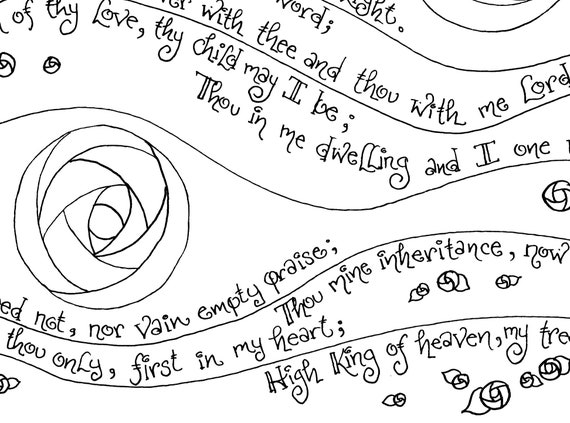 night.
word;
er with thee and thou with me Lord
of thy Love, thy child may I be;
Thou in me dwelling and I one
not, nor vain empty praise;
Thou mine inheritance, now
thou only, first in my heart;
High King of heaven, my